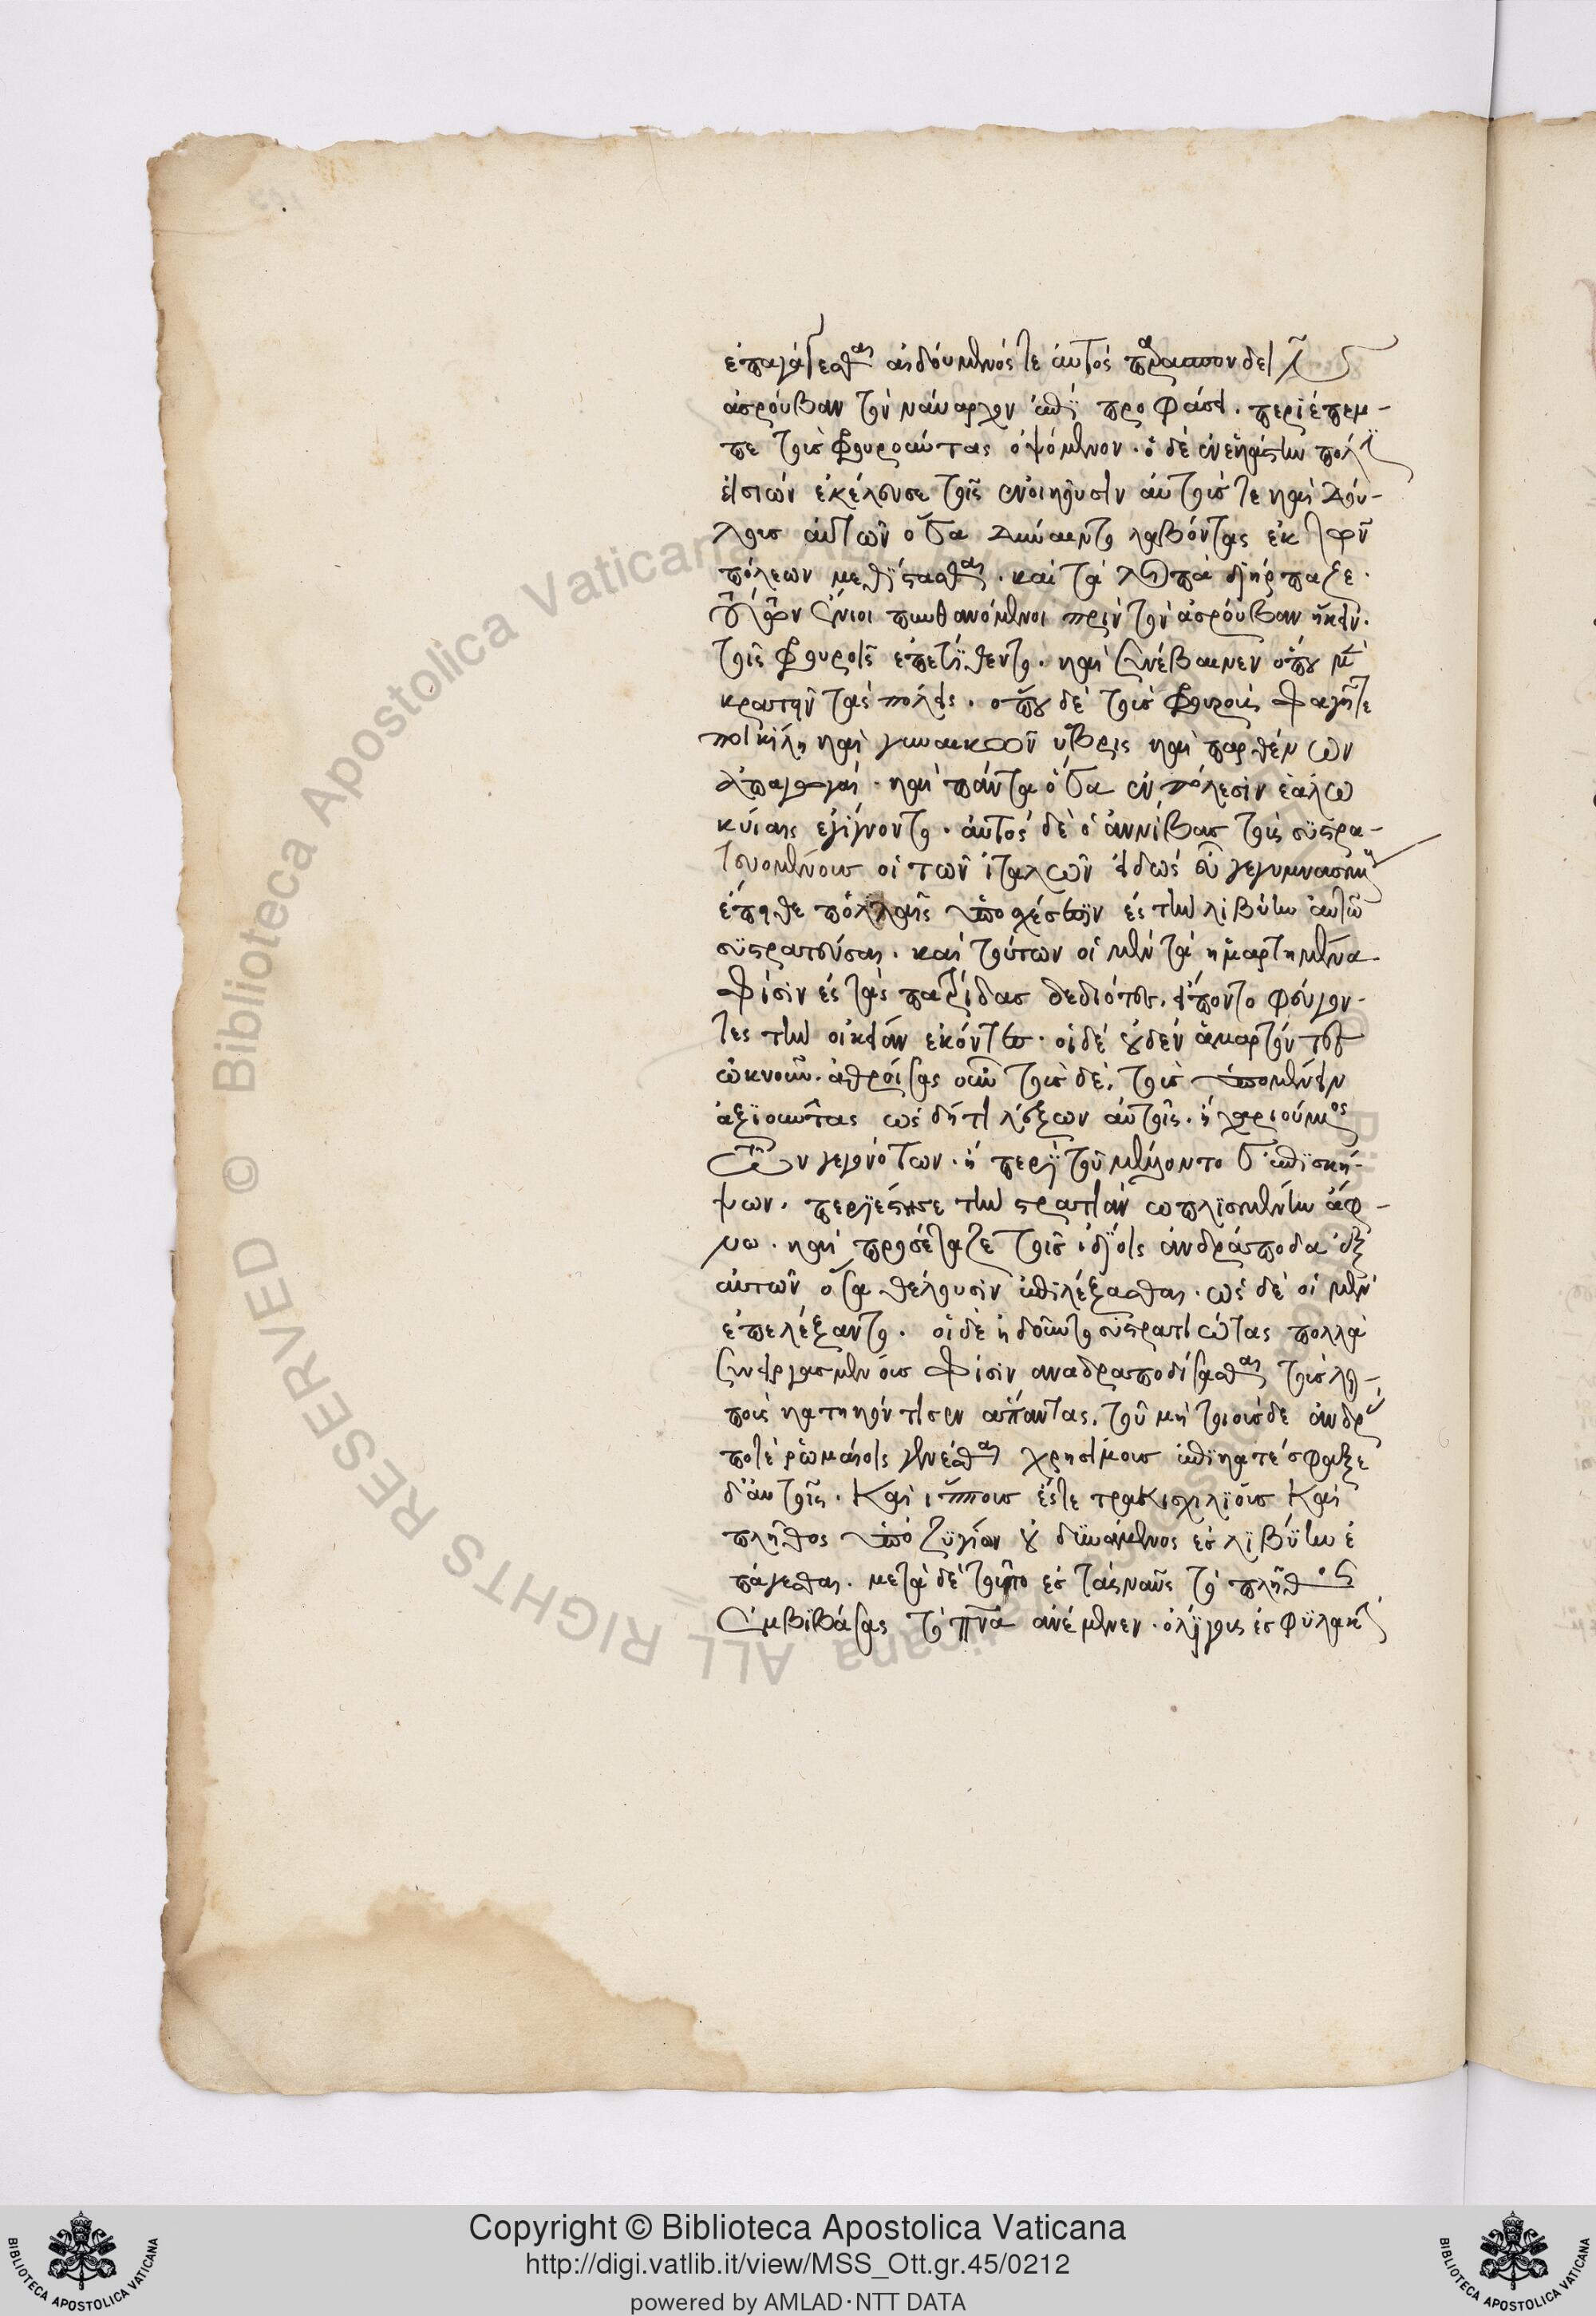 ἐπαγάγεσθαι αἰδούμενός τε αὐτὸς παρασπονδεῖν
ἀσρούβαν τὸν ναύαρχον ἐπὶ προφάσει. περιέπεμ-
πε τοὺς φρουροῦντας ὀψόμενον. ὁ δὲ ἐν ἑκάστην πόλιν
εἰσιὼν ἐκέλευσε τοῖς ἐνοικοῦσιν αὐτούς τε καὶ δού-
λους αὐτῶν ὅσα δύναιντο λαβόντας ἐκ τῶν
πόλεων μεθίστασθαι. καὶ τὰ λοιπὰ διήρπαζε.
ὧν ἔνιοι πυνθανόμενοι πρὶν τὸν ἀσρούβαν ἥκειν.
τοῖς φρουροῖς ἐπετίθεντο. καὶ συνέβαινεν ὅπου μὲν
κρατεῖν τὰς πόλεις. ὅπου δὲ τοὺς φρουρούς σφαγή τε
ποικίλη καὶ γυναικῶν ὕβρις καὶ παρθένων
ἀπαγωγαί. καὶ πάντα ὅσα ἐν πόλεσιν ἑαλω
κυίαις ἐγίγνοντο. αὐτὸς δὲ ὁ ἀννίβας τοὺς συστρα-
τευομένους οἱ τῶν ἰταλῶν εἰδὼς εὖ γεγυμνασμένους
ἔπειθε πολλαῖς ὑποσχέσεσιν ἐς τὴν λιβύην αὐτῶ
συστρατεύσαι. καὶ τούτων οἱ μὲν τὰ ἡμαρτημένα
σφίσιν ἐς τὰς πατρίδας δεδιότες. εἵποντο φεύγον-
τες τὴν οἰκείαν ἑκόντες. οἱ δὲ οὐδὲν ἁμαρτόντες
ὤκνουν. ἀθροίσας οὖν τοὺς δέ, τοὺς ὑπομένειν
ἀξιοῦντας ὡς δή τι λέξων αὐτοῖς. ἢ χαριούμενος
τῶν γεγονότων. ἢ περὶ τοῦ μέλλοντος ἐπισκή-
ψων. περιέστησε τὴν στρατιὰν ὡπλισμένην ἄφ-
νω. καὶ προσέταξε τοῖς ἰδίοις ἀνδράποδα ἐξ
αὐτῶν ὅσα θέλουσιν ἐπιλέξασθαι. ὡς δὲ οἱ μὲν
ἐπελέξαντο. οἱ δὲ ἠδοῦντο συστρατιώτας πολλὰ
συνειργασμένους σφίσιν αναδραποδίσασθαι τοὺς λοι-
ποὺς κατηκόντισεν ἅπαντας, τοῦ μὴ τοιούσδε ἄνδρας
ποτὲ ῥωμαίοις γενέσθαι χρησίμους ἐπικατέσφαξε
δ' αὐτοῖς. καὶ ἵππους ἔς τε τρακισχιλίους καὶ
πλῆθος ὑποζυγίων οὐ δυνάμενος ἐς λιβύην ἐ
πάγεσθαι. μετὰ δὲ τοῦτο ἐς τὰς ναῦς τὸ πλῆθος
ἐμβιβάσας τὸ πνα ἀνέμενεν. ὀλίγους ἐς φυλακὴν
Copyright © Biblioteca Apostolica Vaticana
http://digi.vatlib.it/view/MSS_Ott.gr.45/0212
powered by AMLAD·NTT DATA